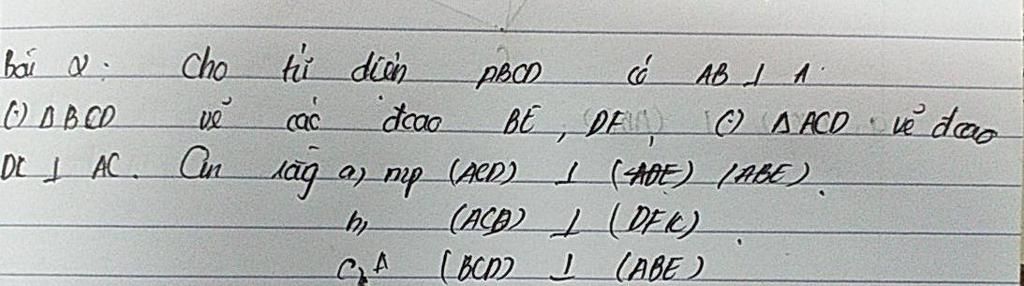 Bài 2: Cho tứ diện ABCD có AB ⊥ A
(.) Δ BCD vẽ các đcao BE, DF, (.) Δ ACD vẽ đcao
DK ⊥ AC. Cm rằg a, mp (ACD) ⊥ (ADE) (ABE).
b, (ACB) ⊥ (DFK).
c, (BCD) ⊥ (ABE)